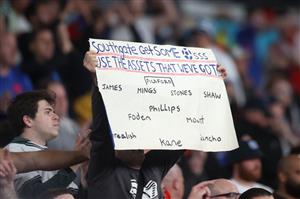 Southgate Get SOME
USE THE ASSETS THAT WE'VE GOT!
(PICKFORD)
JAMES MINGS STONES SHAW
PHILLIPS
Foden Mount
Grealish Kane Sancho